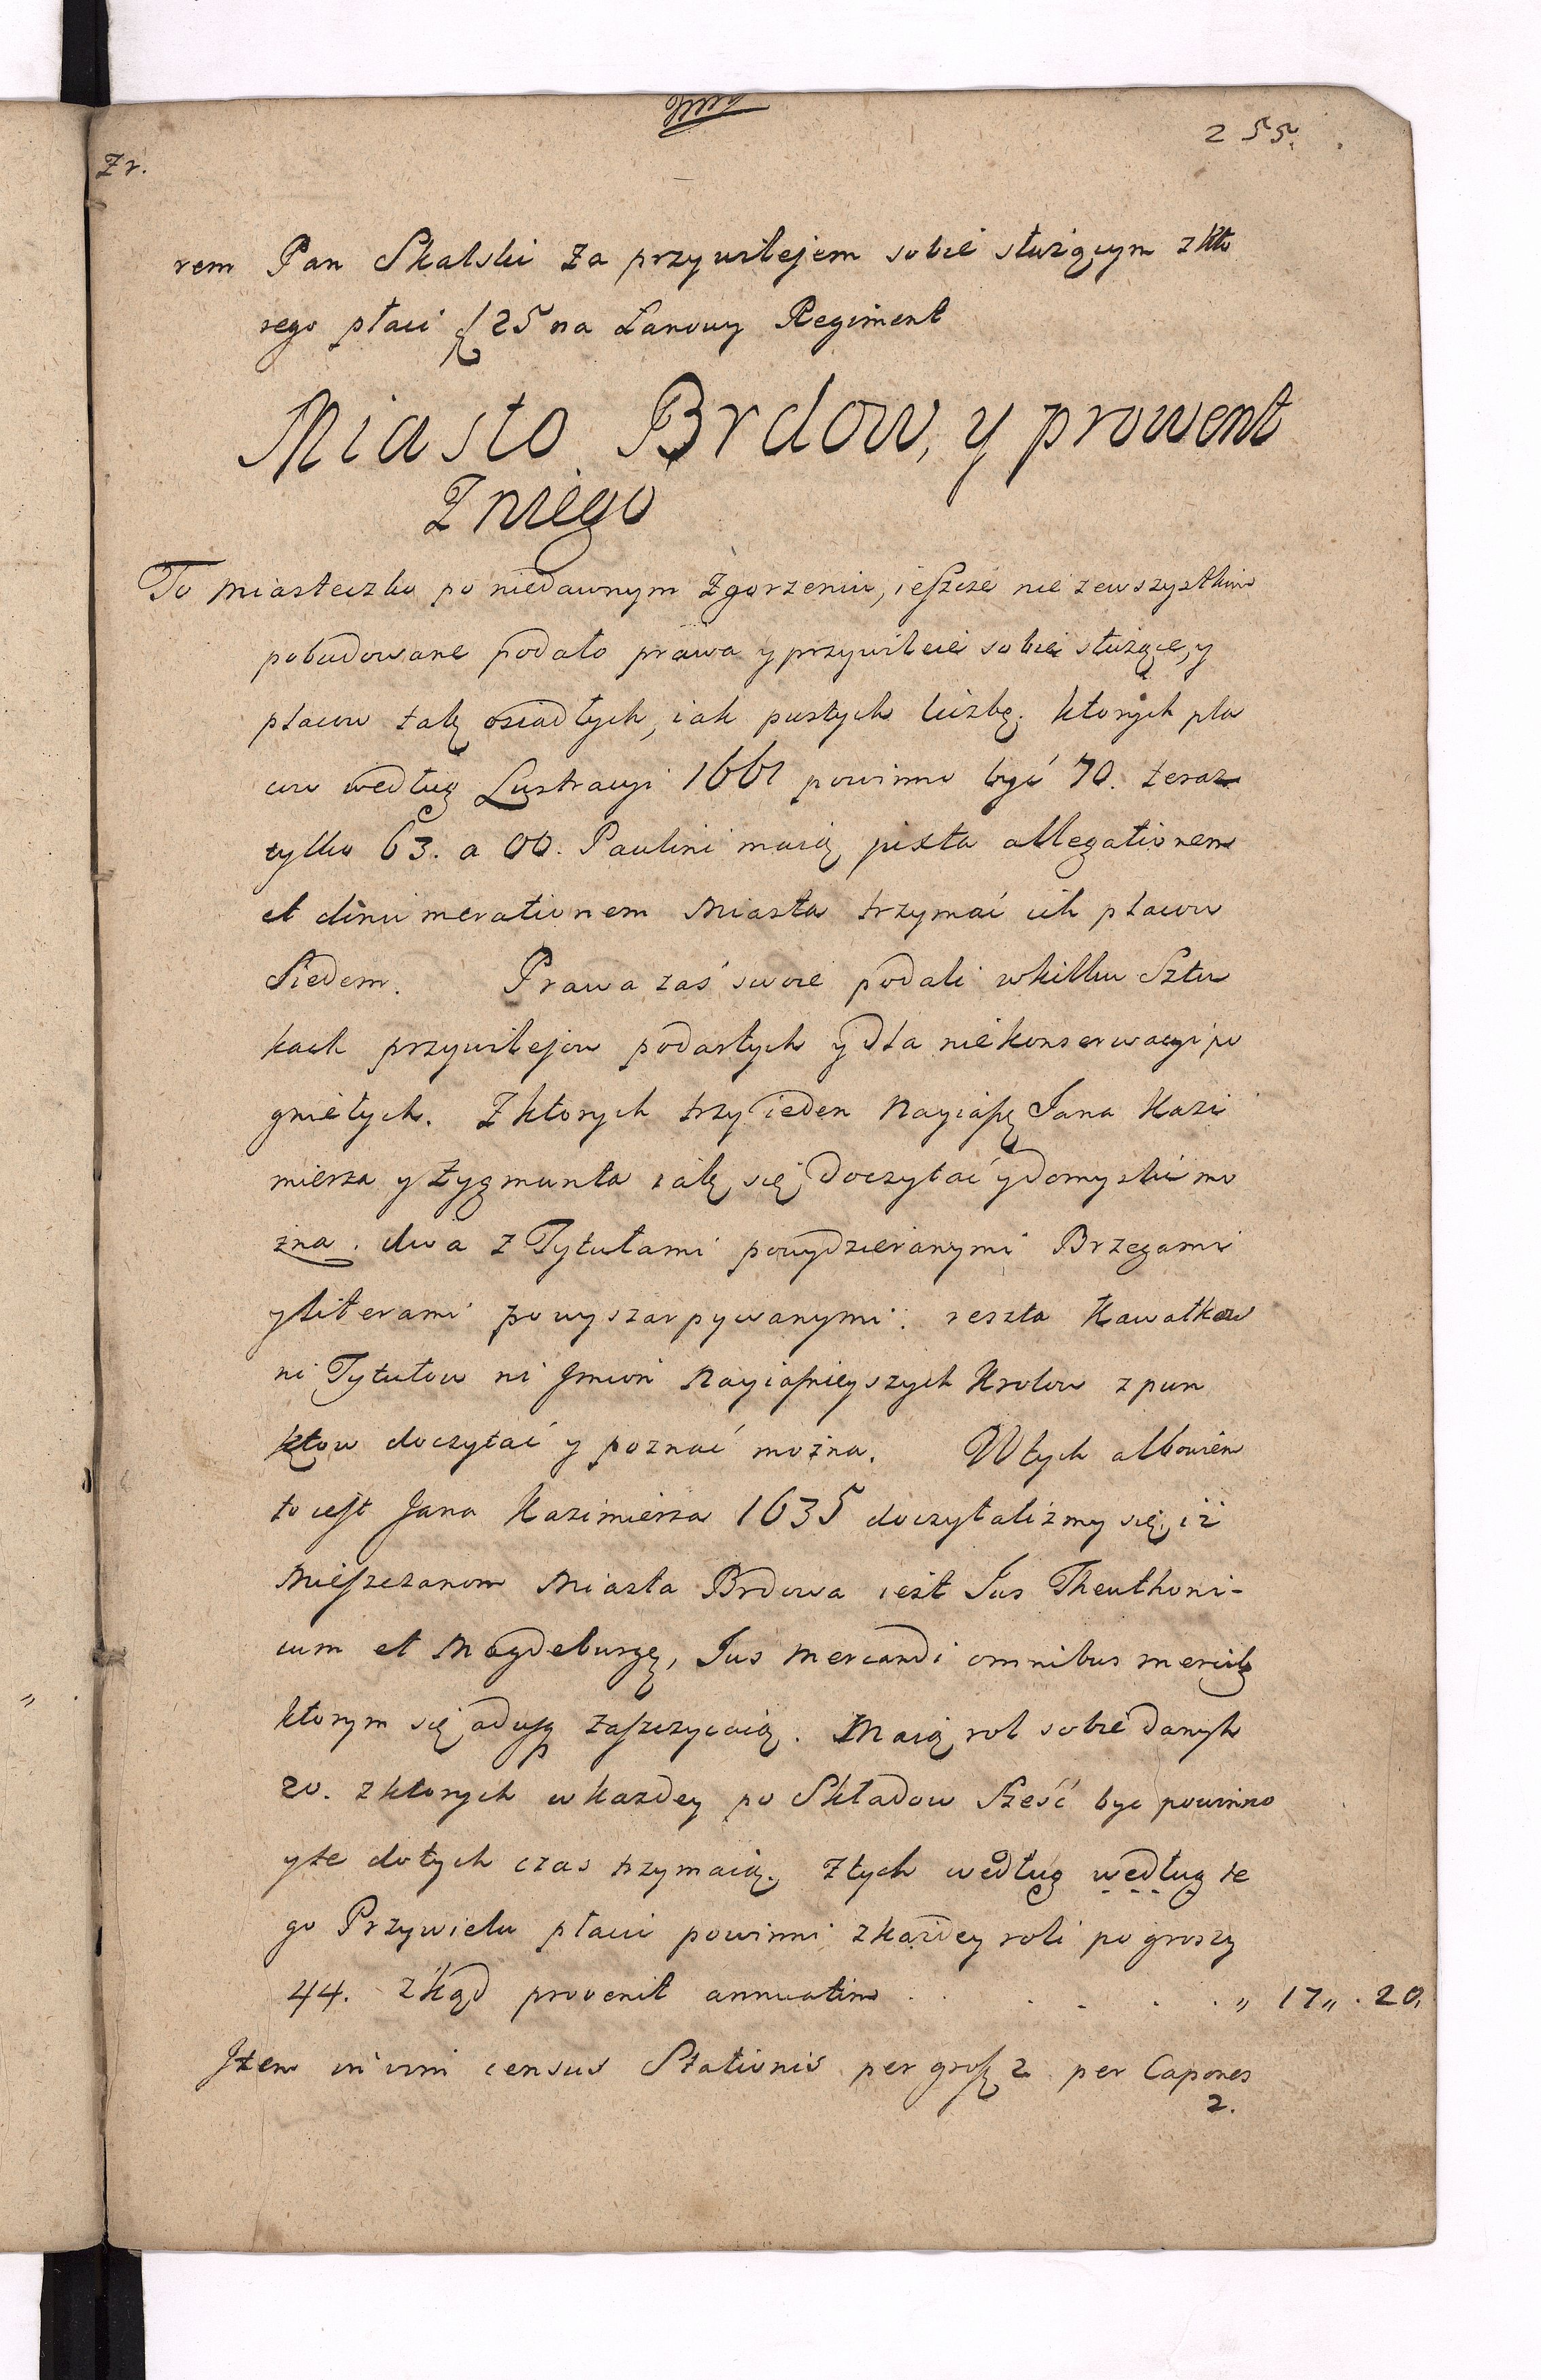 255.
Zr.
rem Pan Skalski za przywilejem sobie służącym z kto
rego płaci 25 na Łanowy Regiment
Miasto Brdow, y prowent
Z niego
To miasteczko po niedawnym Zgorzeniu, ieszcze nie zewszystkim
pobudowane podało prawa y przywileie sobie służące, y
placow tak osiadłych, iak pustych liczbę. ktorych pla
cow według Lustracyi 1661 powinno być 70. teraz
tylko 63. a OO. Paulini maią juxta allegationem
et dinumerationem Miasta trzymać ich placow
Siedem. Prawa zaś swoie podali w killku Sztu
kach przywilejow podartych y dla niekonserwacyi po
gniełych. Z ktorych trzy ieden Nayiaśę Jana Kazi
mierza y Zygmunta całę się doczytać y domyslić mo
żna. dwa z Tytułami powydzieranymi Brzegami
y literami powyszarpywanymi: reszta Kawałkow
ni Tytułow ni Jmion Nayiaśnieyszych Krolow z pun
ktow doczytać y poznać można. W tych albowiem
to iest Jana Kazimierza 1635 doczytalizmy się, iż
Mieszczanom Miasta Brdowa iest Jus Theuthoni-
cum et Magdeburgę, Jus mercandi omnibus mercib
ktorym się adusq zaszczycaią. Maią rol sobie danych
20. z ktorych w kazdey po Składow Sześć byc powinno
y te do tych czas trzymaią. Z tych według według te
go Przywielu płacić powinni z każdey roli po groszy
44. Zkąd provenit annuatim . . . . . " 17 " . 20.
Jtem census Stationis per grosę 2 per Capones
2.